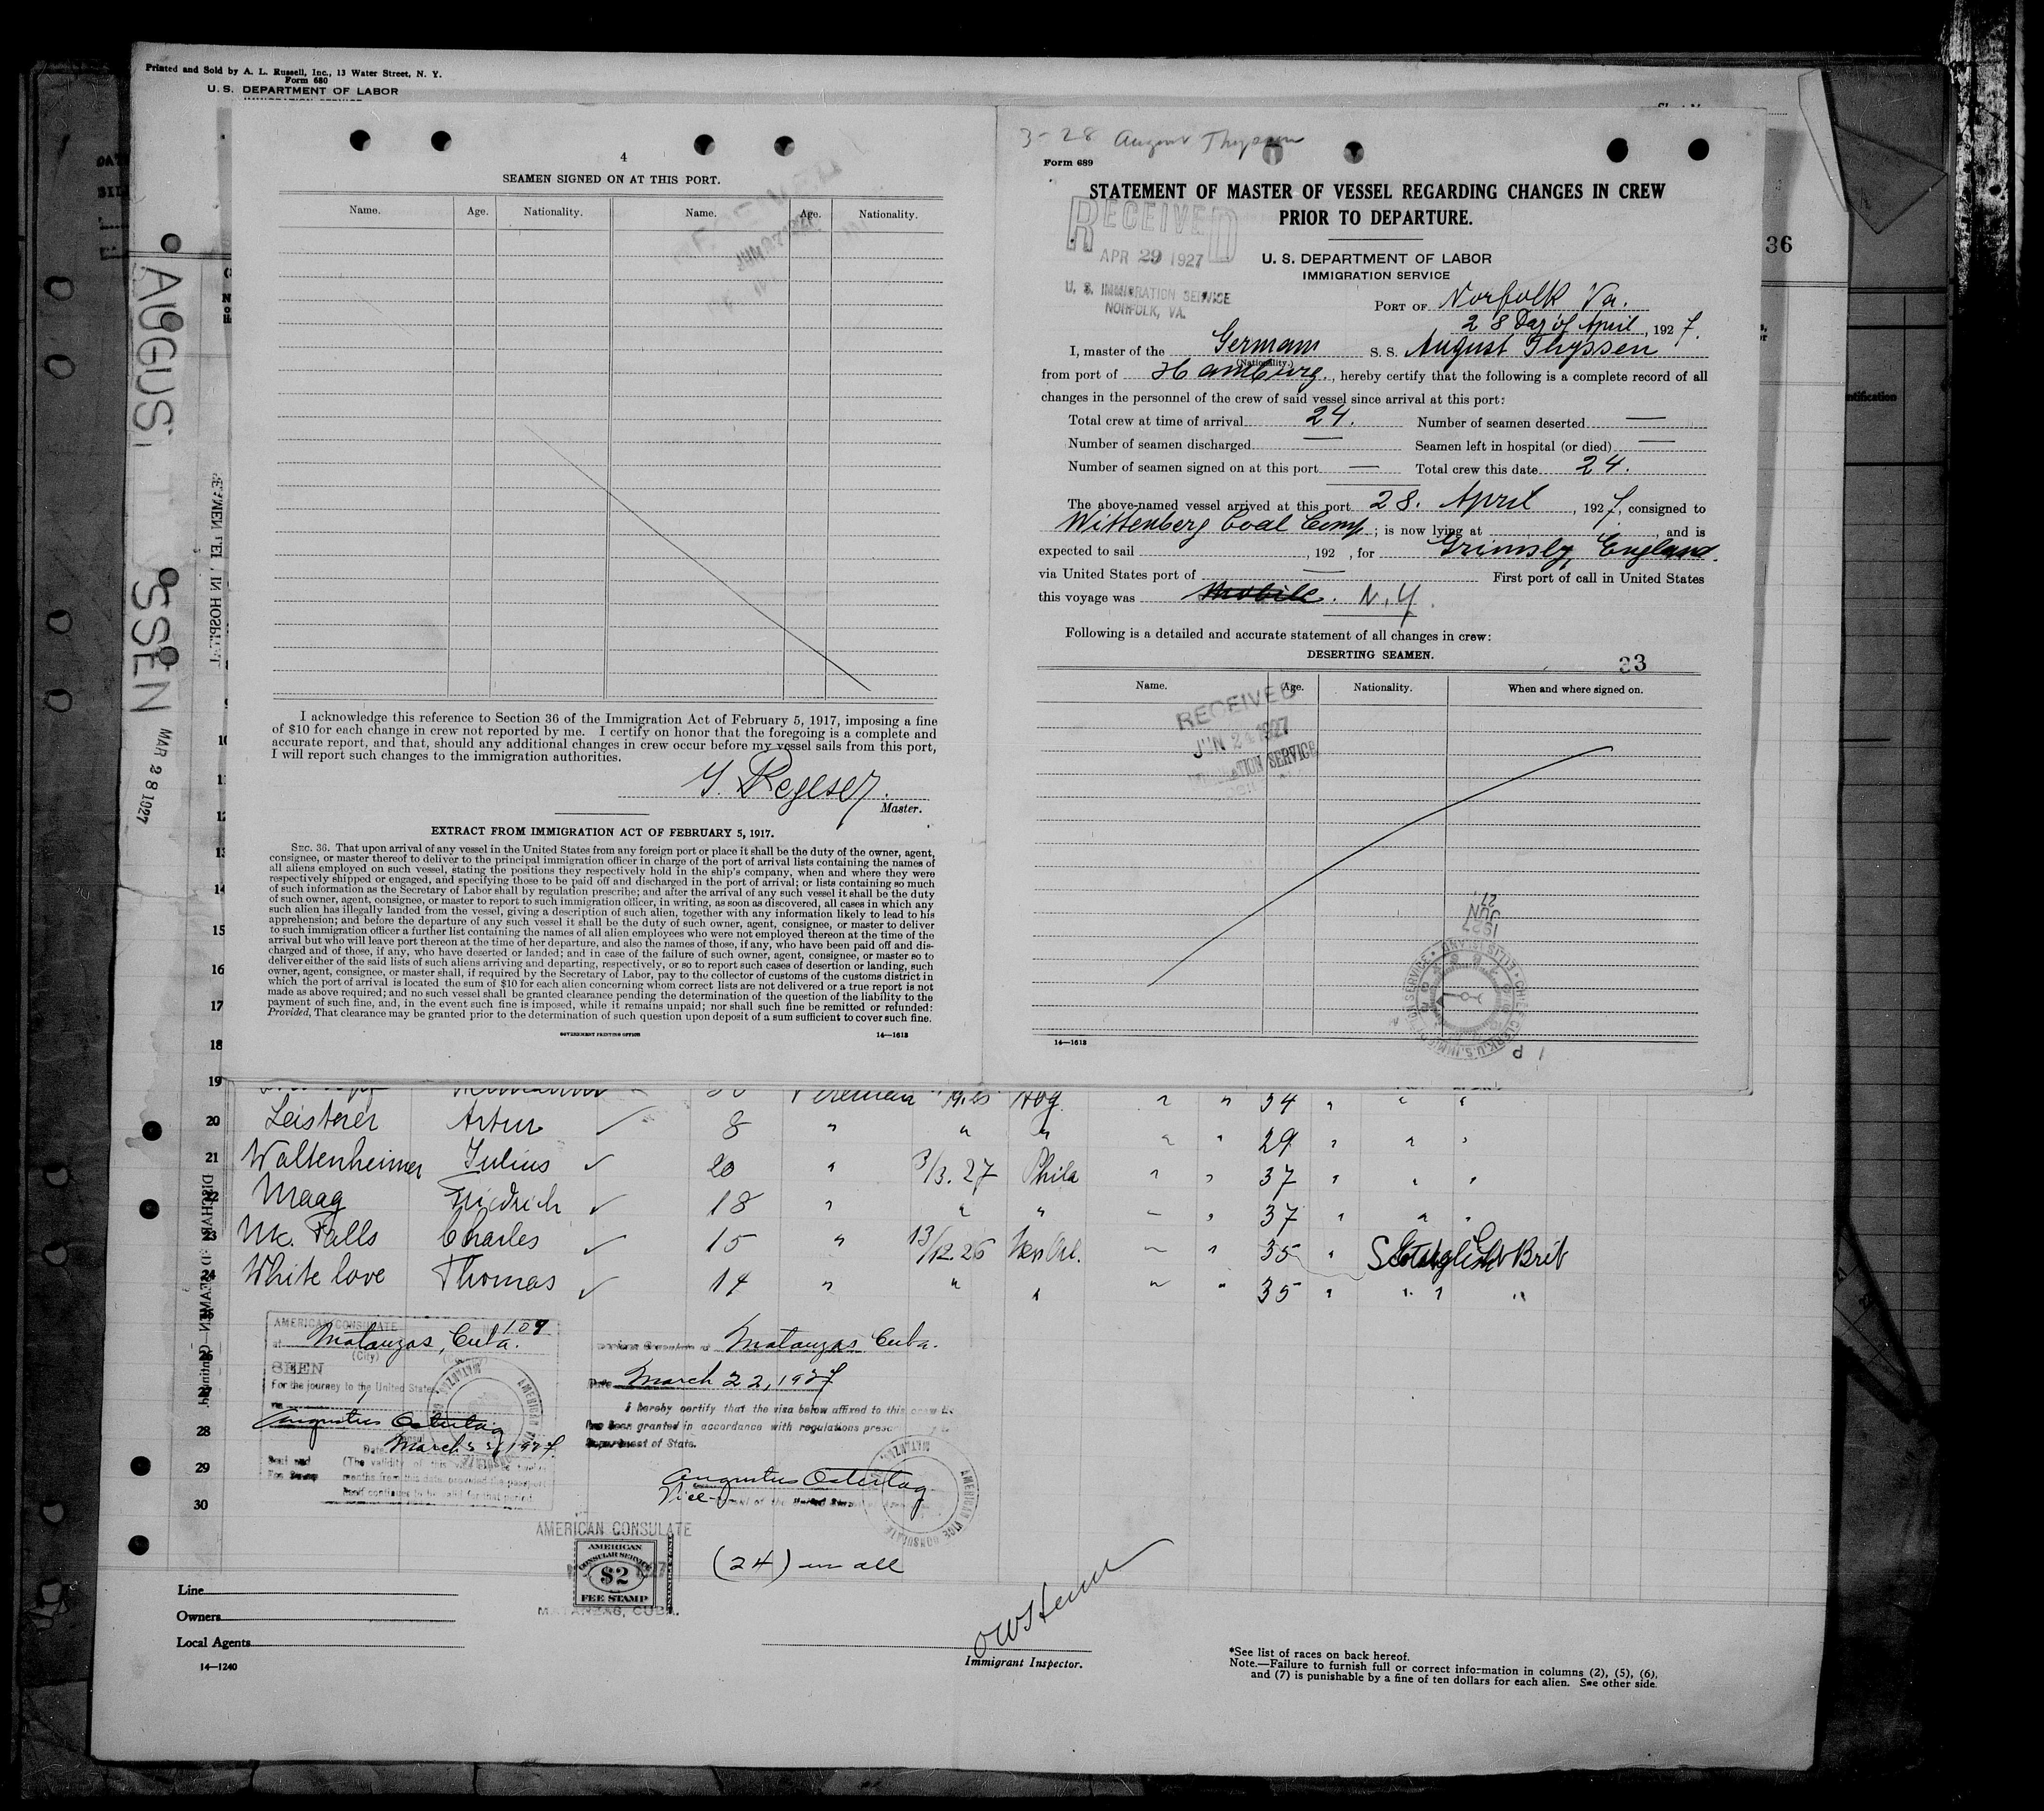 Printed and Sold by A. L. Russell, Inc., 13 Water Street, N. Y.
Form 680
U. S. DEPARTMENT OF LABOR
36
AUGUST
SSEN
MAR 28 1927
4
SEAMEN SIGNED ON AT THIS PORT.
Name. Age. Nationality. Name. Age. Nationality.
I acknowledge this reference to Section 36 of the Immigration Act of February 5, 1917, imposing a fine
of $10 for each change in crew not reported by me. I certify on honor that the foregoing is a complete and
accurate report, and that, should any additional changes in crew occur before my vessel sails from this port,
I will report such changes to the immigration authorities.
Master.
EXTRACT FROM IMMIGRATION ACT OF FEBRUARY 5, 1917.
SEC. 36. That upon arrival of any vessel in the United States from any foreign port or place it shall be the duty of the owner, agent,
consignee, or master thereof to deliver to the principal immigration officer in charge of the port of arrival lists containing the names of
all aliens employed on such vessel, stating the positions they respectively hold in the ship's company, when and where they were
respectively shipped or engaged, and specifying those to be paid off and discharged in the port of arrival; or lists containing so much
of such information as the Secretary of Labor shall by regulation prescribe; and after the arrival of any such vessel it shall be the duty
of such owner, agent, consignee, or master to report to such immigration officer, in writing, as soon as discovered, all cases in which any
such alien has illegally landed from the vessel, giving a description of such alien, together with any information likely to lead to his
apprehension; and before the departure of any such vessel it shall be the duty of such owner, agent, consignee, or master to deliver
to such immigration officer a further list containing the names of all alien employees who were not employed thereon at the time of the
arrival but who will leave port thereon at the time of her departure, and also the names of those, if any, who have been paid off and dis-
charged and of those, if any, who have deserted or landed; and in case of the failure of such owner, agent, consignee, or master so to
deliver either of the said lists of such aliens arriving and departing, respectively, or so to report such cases of desertion or landing, such
owner, agent, consignee, or master shall, if required by the Secretary of Labor, pay to the collector of customs of the customs district in
which the port of arrival is located the sum of $10 for each alien concerning whom correct lists are not delivered or a true report is not
made as above required; and no such vessel shall be granted clearance pending the determination of the question of the liability to the
payment of such fine, and, in the event such fine is imposed, while it remains unpaid; nor shall such fine be remitted or refunded:
Provided, That clearance may be granted prior to the determination of such question upon deposit of a sum sufficient to cover such fine.
GOVERNMENT PRINTING OFFICE 14—1613
3-28 August Thyssen
Form 689
STATEMENT OF MASTER OF VESSEL REGARDING CHANGES IN CREW
PRIOR TO DEPARTURE.
RECEIVED
APR 29 1927
U. S. IMMIGRATION SERVICE
NORFOLK, VA.
U. S. DEPARTMENT OF LABOR
IMMIGRATION SERVICE
PORT OF Norfolk Va.
28 Day of April, 1927.
I, master of the German S. S. August Thyssen
(Nationality.)
from port of Hamburg, hereby certify that the following is a complete record of all
changes in the personnel of the crew of said vessel since arrival at this port:
Total crew at time of arrival 24. Number of seamen deserted —
Number of seamen discharged — Seamen left in hospital (or died) —
Number of seamen signed on at this port — Total crew this date 24.
The above-named vessel arrived at this port 28. April, 1927, consigned to
Wittenberg Coal Comp; is now lying at , and is
expected to sail , 192 , for Grimsby, England.
via United States port of — First port of call in United States
this voyage was Mobile. N.Y.
Following is a detailed and accurate statement of all changes in crew:
DESERTING SEAMEN.
33
Name. Age. Nationality. When and where signed on.
RECEIVED
JUN 24 1927
IMMIGRATION SERVICE
1927
JUN
27
14—1613
10
11
12
13
14
15
16
17
18
19
20 Leisterer Artur 8 " " " " " 29 " " "
21 Waltenheimer Julius 20 " 3/3.27 Phila " " 37 " " "
22 Maag Friedrich 18 " " " " " 37 " " "
23 Mc. Falls Charles 15 " 13/12.26 New Orl. " " 35 " Brit
24 White love Thomas 14 " " " " " 35 " " " "
26
28
29
30
AMERICAN CONSULATE
109
at Matanzas, Cuba.
(City)
SEEN
For the journey to the United States
Augustus Ostertag
Date March 22, 1927
Matanzas Cuba.
Date March 22, 1927
I hereby certify that the visa below affixed to this crew
has been granted in accordance with regulations
Department of State.
Augustus Ostertag
Vice
AMERICAN CONSULATE
AMERICAN
CONSULAR SERVICE
$2
FEE STAMP
MATANZAS, CUBA.
(24) in all
Line
Owners
Local Agents
14—1240
Immigrant Inspector.
*See list of races on back hereof.
Note.—Failure to furnish full or correct information in columns (2), (5), (6),
and (7) is punishable by a fine of ten dollars for each alien. See other side.